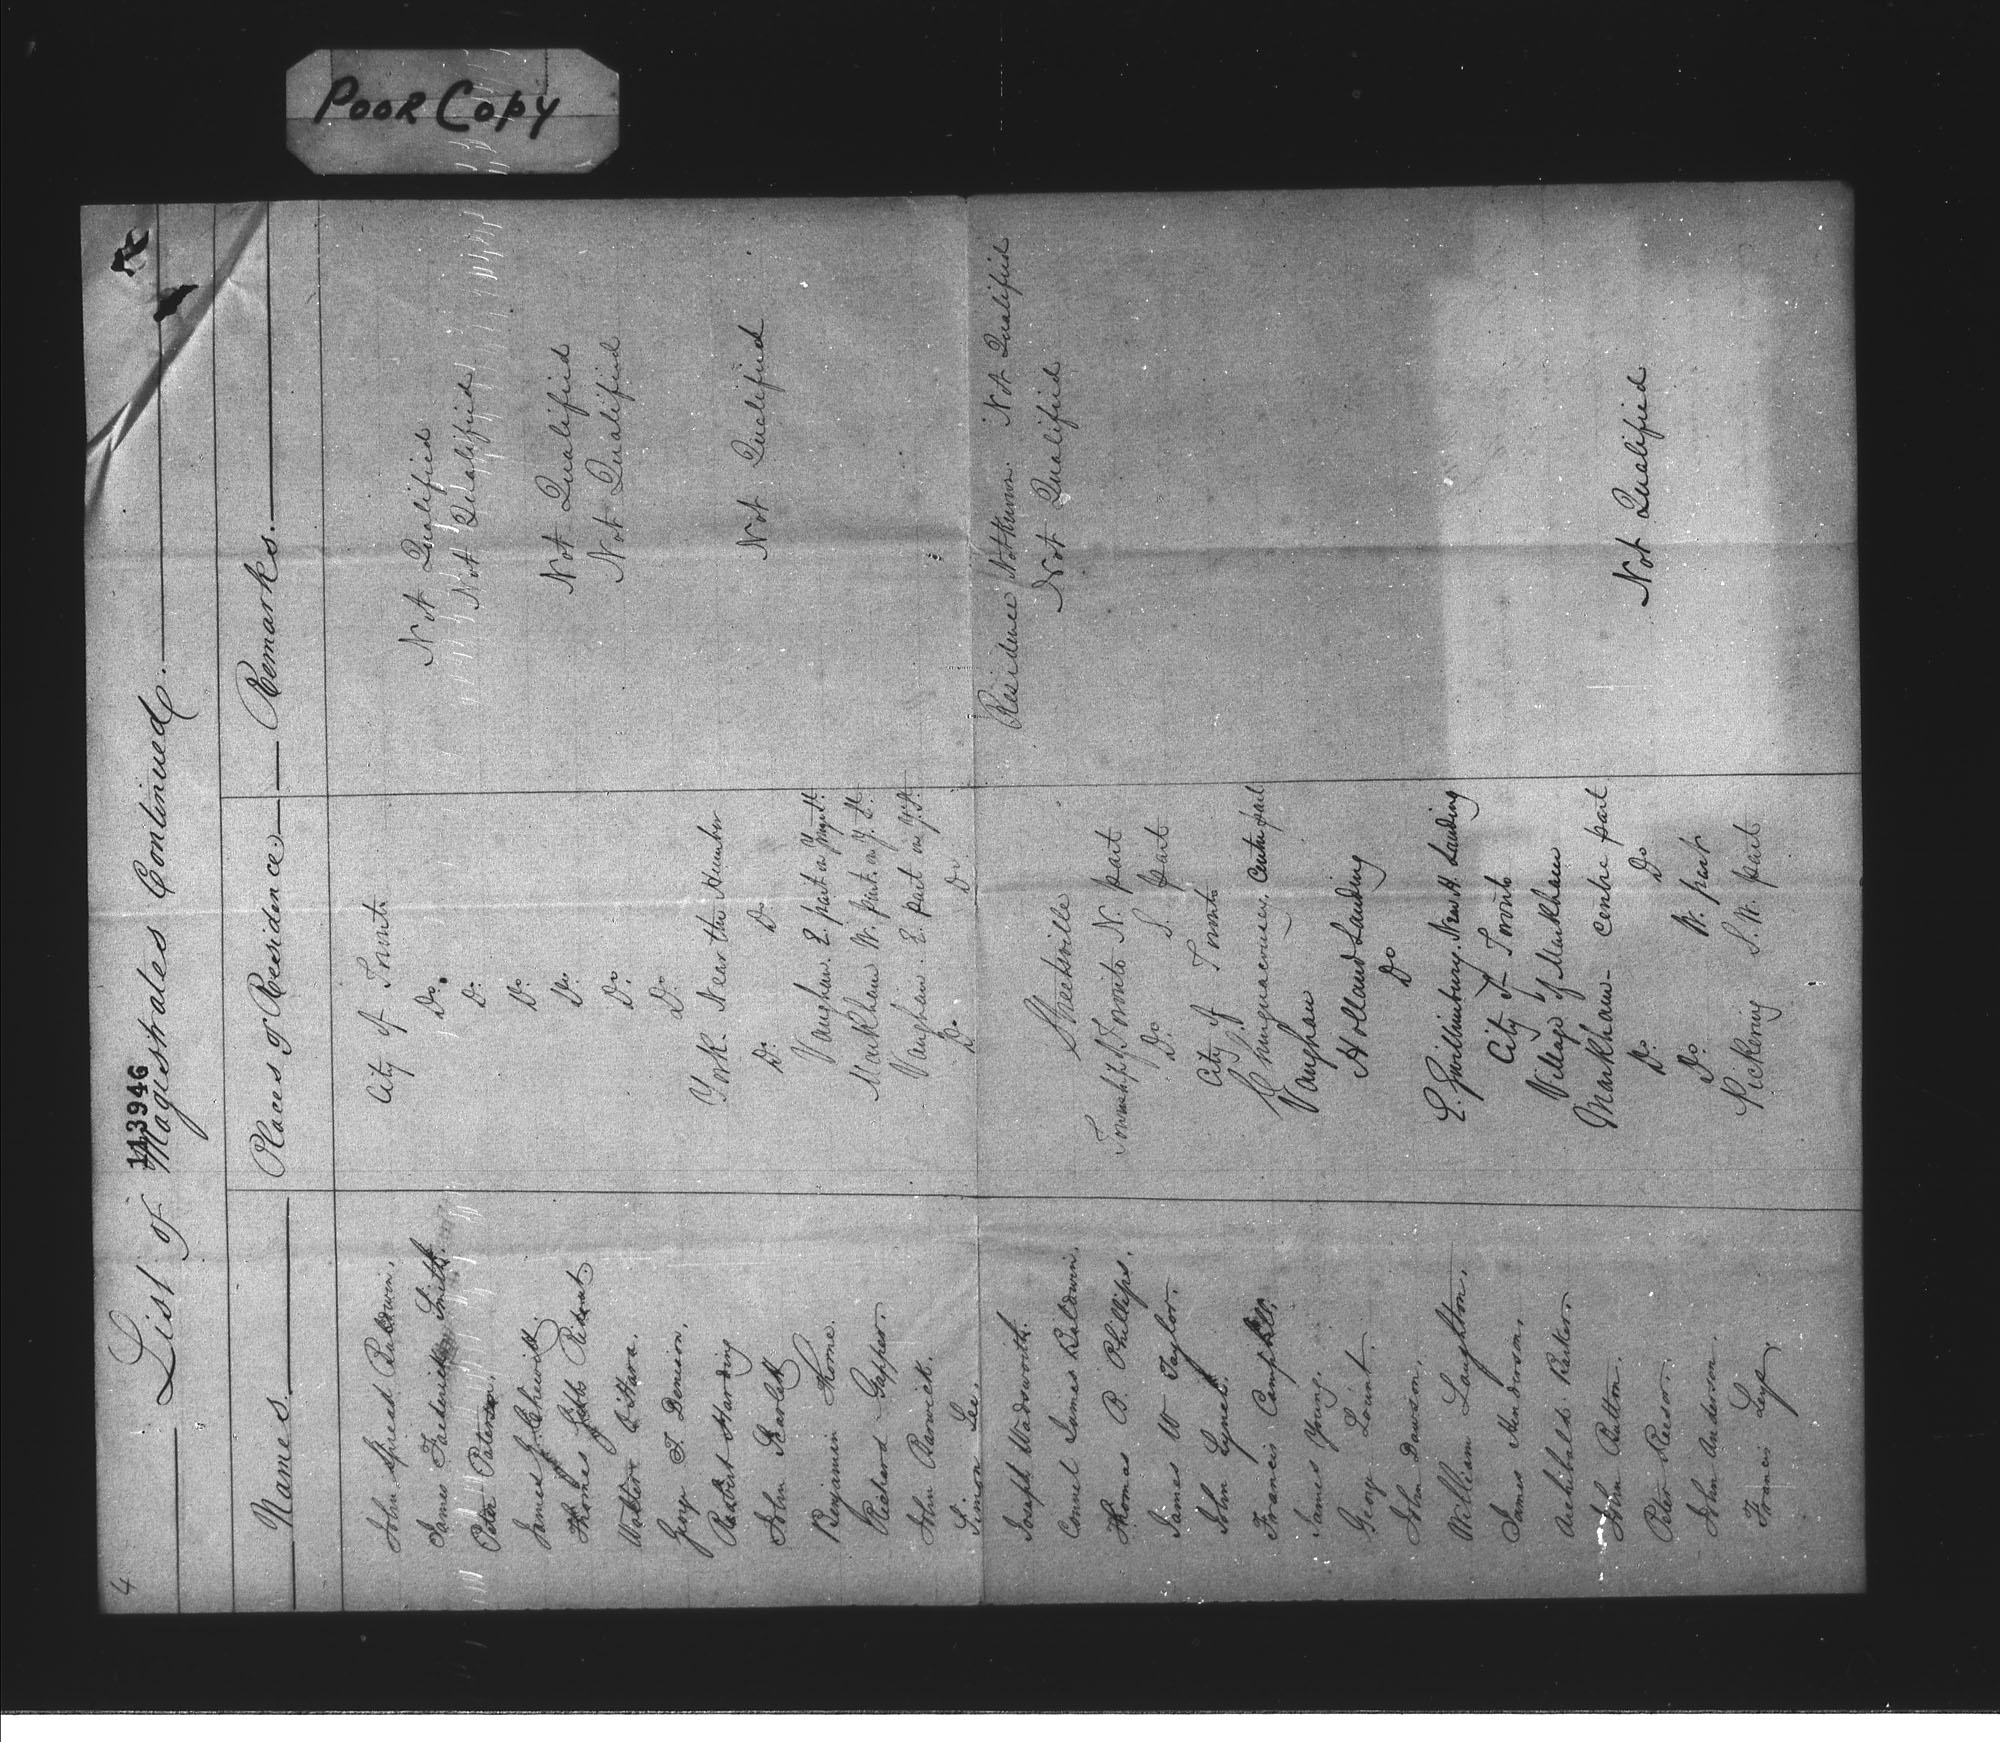 POOR COPY
4
113946
List of Magistrates Continued.
Names. Places of Residence Remarks.
John Spread Baldwin. City of Toronto
James Frederick Smith. Do. Not Qualified
Peter Paterson. Do. Not Qualified
James G. Chewitt. Do.
Thomas Gibbs Ridout Do. Not Qualified
Walter O'Hara. Do. Not Qualified
George T. Denison. Do.
Robert Harding York. Near the Humber
John Scarlett Do. Do. Not Qualified
Benjamin Thorne. Vaughan. E. part on Yonge St.
Richard Gapper. Markham W. part on Y. St.
John Barwick. Vaughan. E. part on Y. St.
Simon Lee. Do. Do
Joseph Wadsworth. Residence Not Known. Not Qualified
Connel James Baldwin. Streetsville Not Qualified
Thomas B. Phillips. Township of Toronto N. part
James W Taylor. Do. S. part
John Lynch. City of Toronto
Francis Campbell. Chinguacousey. Centre part
James Young. Vaughan
George Lount. Holland Landing
John Dawson. Do
William Laughton. E. Gwillimbury. Near H. Landing
James Henderson. City of Toronto
Archibald Barker. Village of Markham
John Button. Markham - centre part
Peter Reesor. Do. Do Not Qualified
John Anderson. Do. W. part
Francis Leys Pickering S. W. part